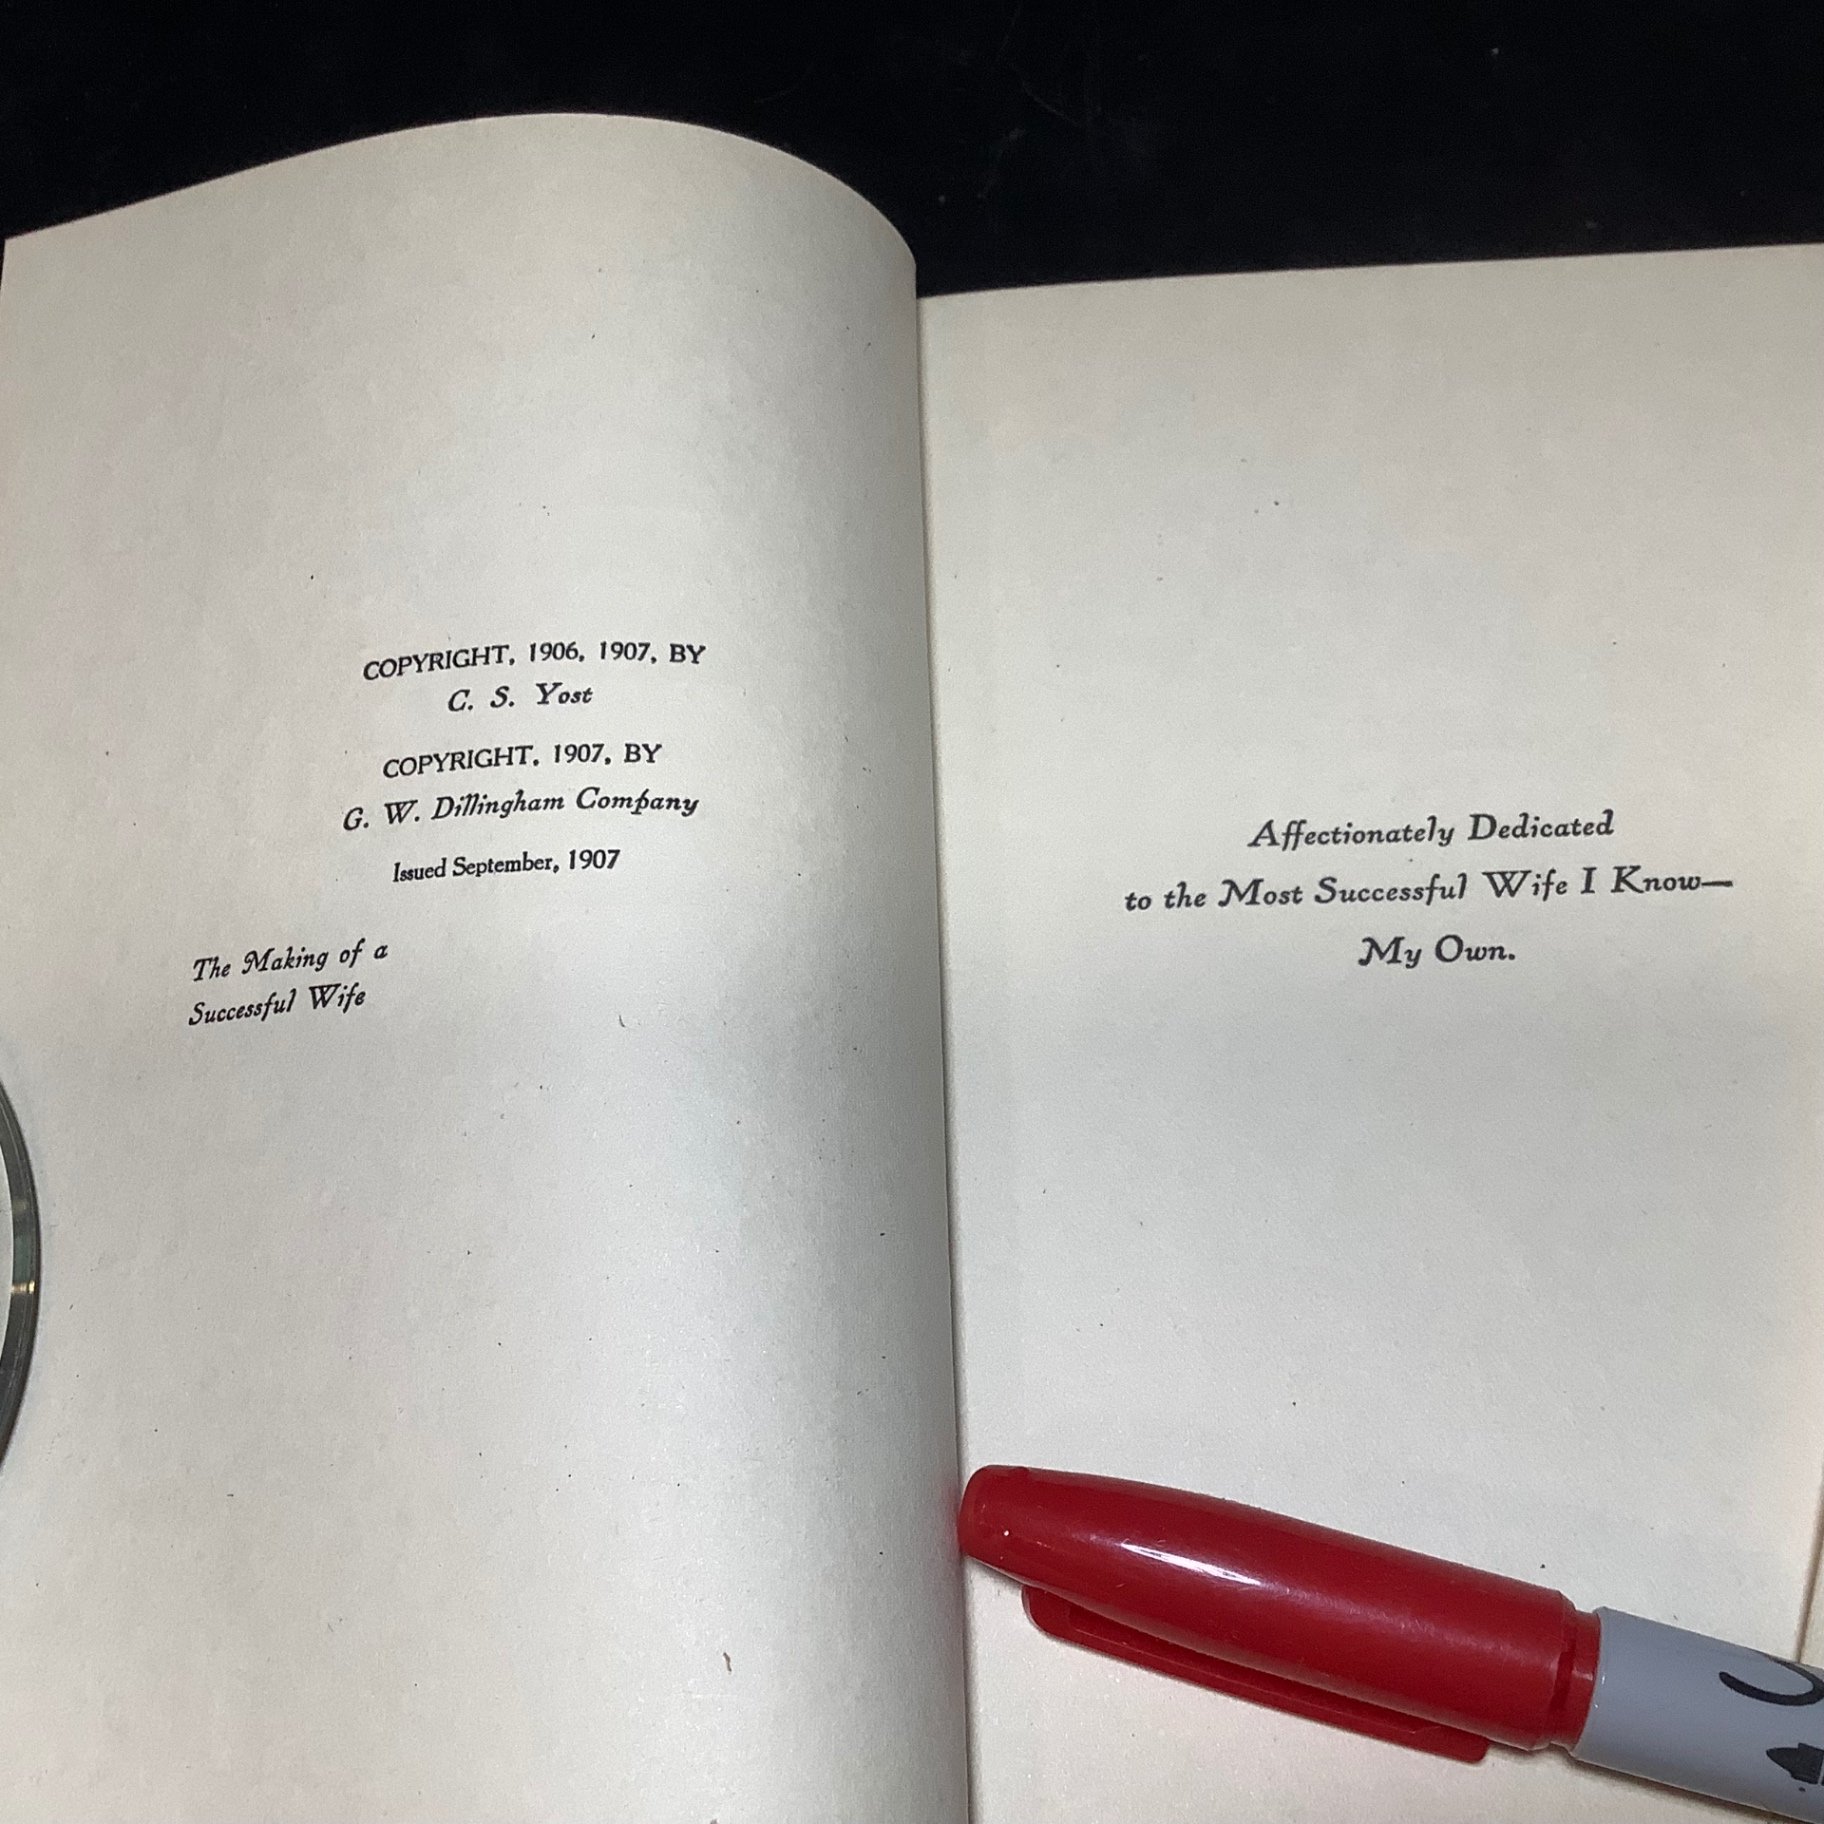 COPYRIGHT, 1906, 1907, BY
C. S. Yost
COPYRIGHT, 1907, BY
G. W. Dillingham Company
Issued September, 1907
The Making of a
Successful Wife
Affectionately Dedicated
to the Most Successful Wife I Know—
My Own.